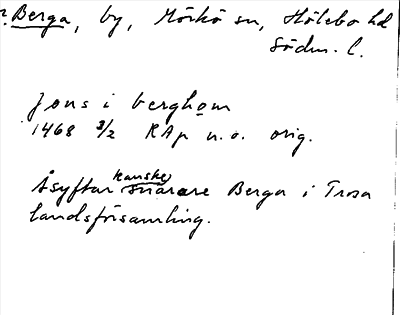 Berga, by, Mörkö sn, Hölebo hd
Södm. l.
Jons i berghom
1468 3/2 RAp n.o. orig.
kanske
Åsyftar snarare Berga i Trosa
landsförsamling.